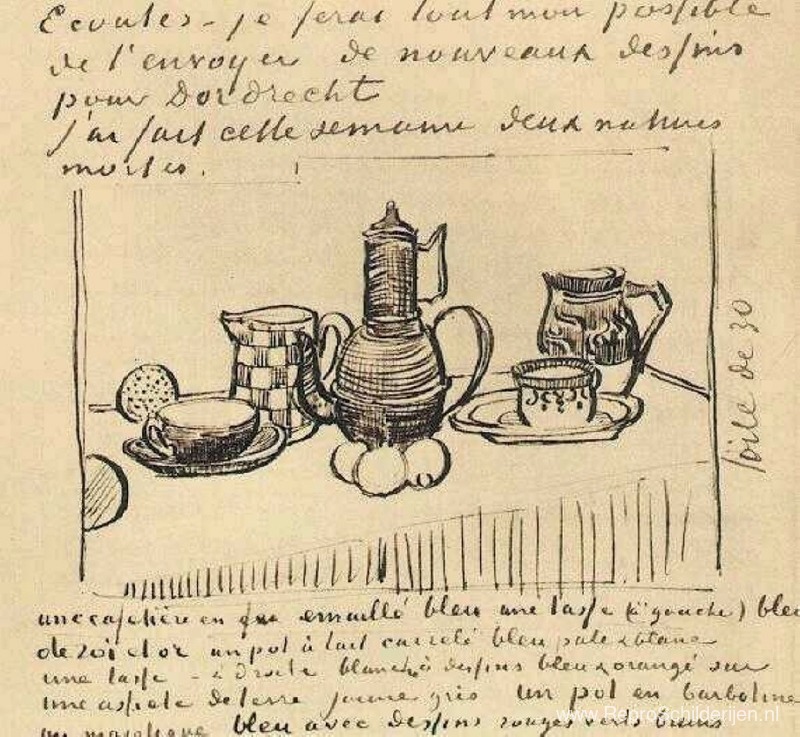 Ecoutes - je ferai tout mon possible
de t'envoyer de nouveaux dessins
pour Dordrecht
j'ai fait cette semaine deux natures
mortes.
toile de 30
une cafetière en fer emaillé bleu une tasse (à gauche) bleu
de roi et or un pot à lait carrelé bleu pale & blanc
une tasse - à droite blanche à dessins bleu & orangé sur
une assiette de terre jaune gris un pot en barbotine
ou majolique bleu avec dessins rouges verts bruns
www.ReproSchilderijen.nl